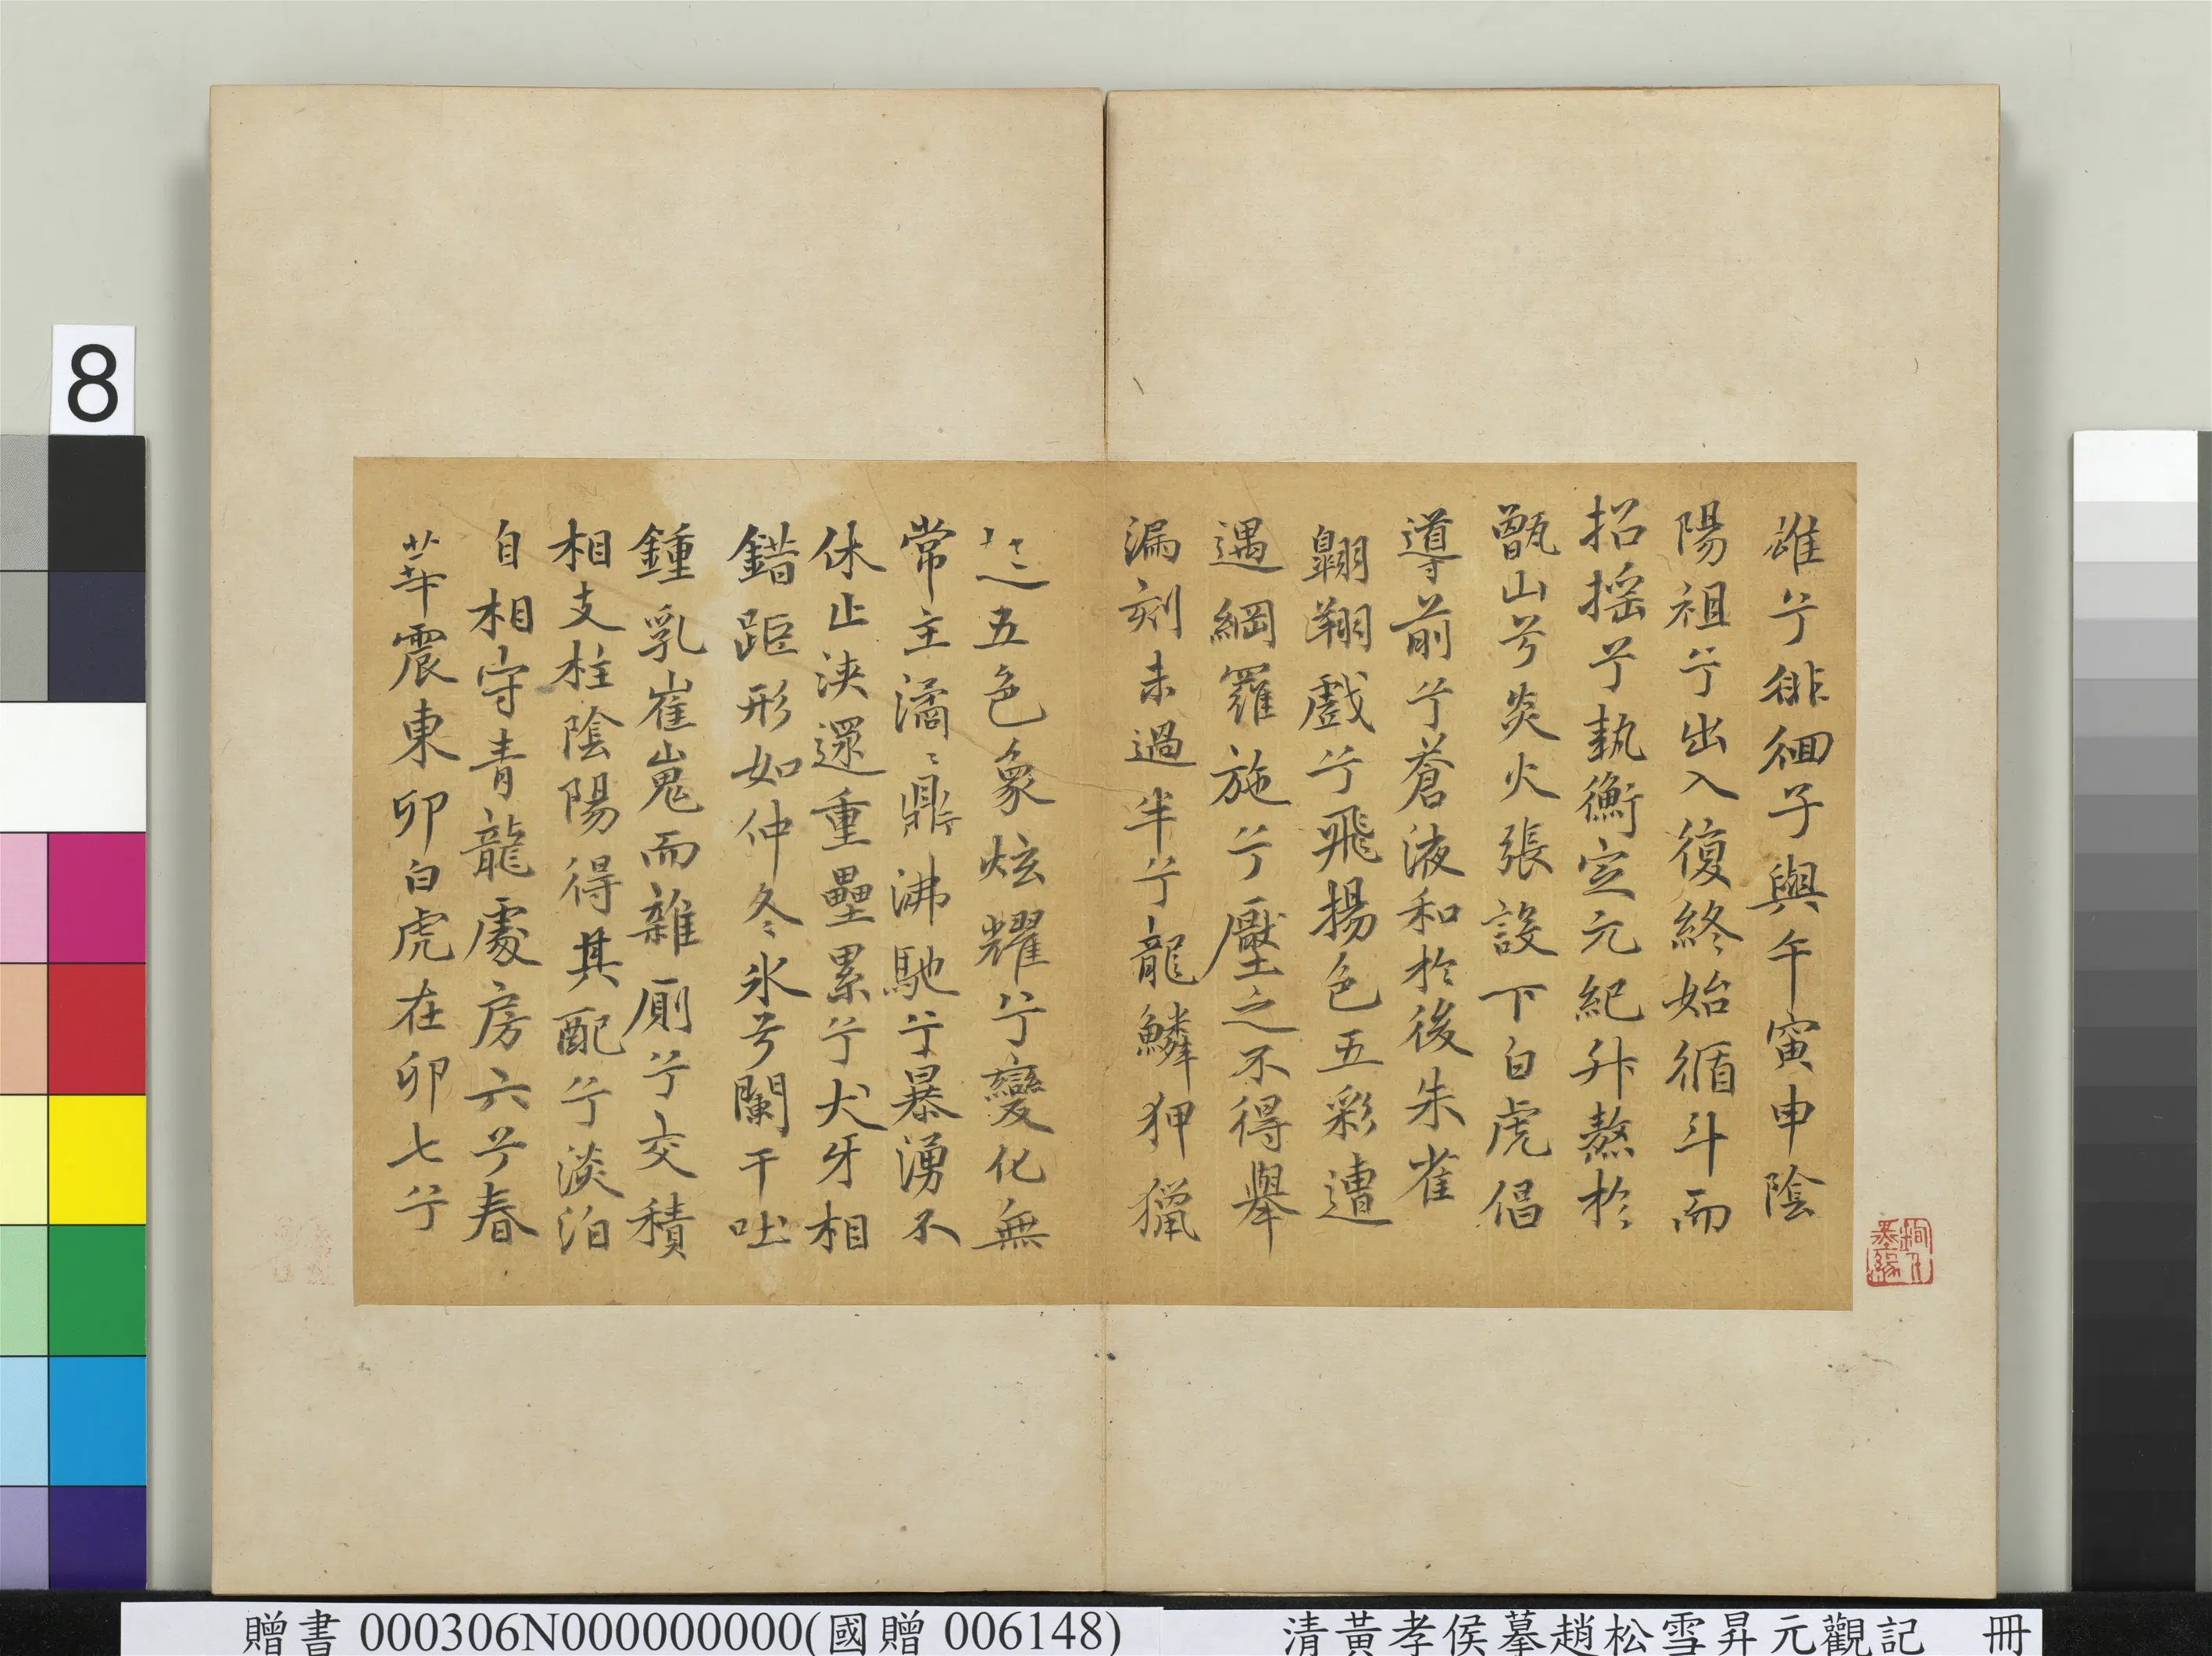 雄兮徘徊子與午寅申陰
陽祖兮出入復終始循斗而
招搖兮執衡定元紀升熬於
甑山兮炎火張設下白虎倡
導前兮蒼液和於後朱雀
翱翔戲兮飛揚色五彩遭
遇綱羅施兮壓之不得舉
漏刻未過半兮龍鱗狎獵
五色象炫耀兮變化無
常主潏〻鼎沸馳兮暴湧不
休止浹還重壘累兮犬牙相
錯距形如仲冬氷兮闌干吐
鍾乳崔嵬而雜厠兮交積
相支柱陰陽得其配兮淡泊
自相守青龍處房六兮春
華震東卯白虎在卯七兮
墨緣
8
贈書 000306N000000000(國贈 006148)
清黃孝侯摹趙松雪昇元觀記 冊